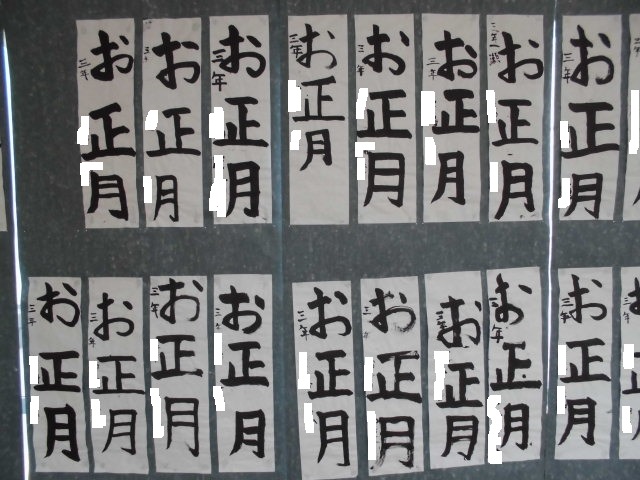 お正月
三年
お正月
お正月
三年
お正月
三年
お正月
三年
お正月
三年
お正月
お正月
三年
お正月
三年
お正月
三年
お正月
三年
お正月
お正月
三年
お正月
お正月
三年
お正月
三年
お正月
三年